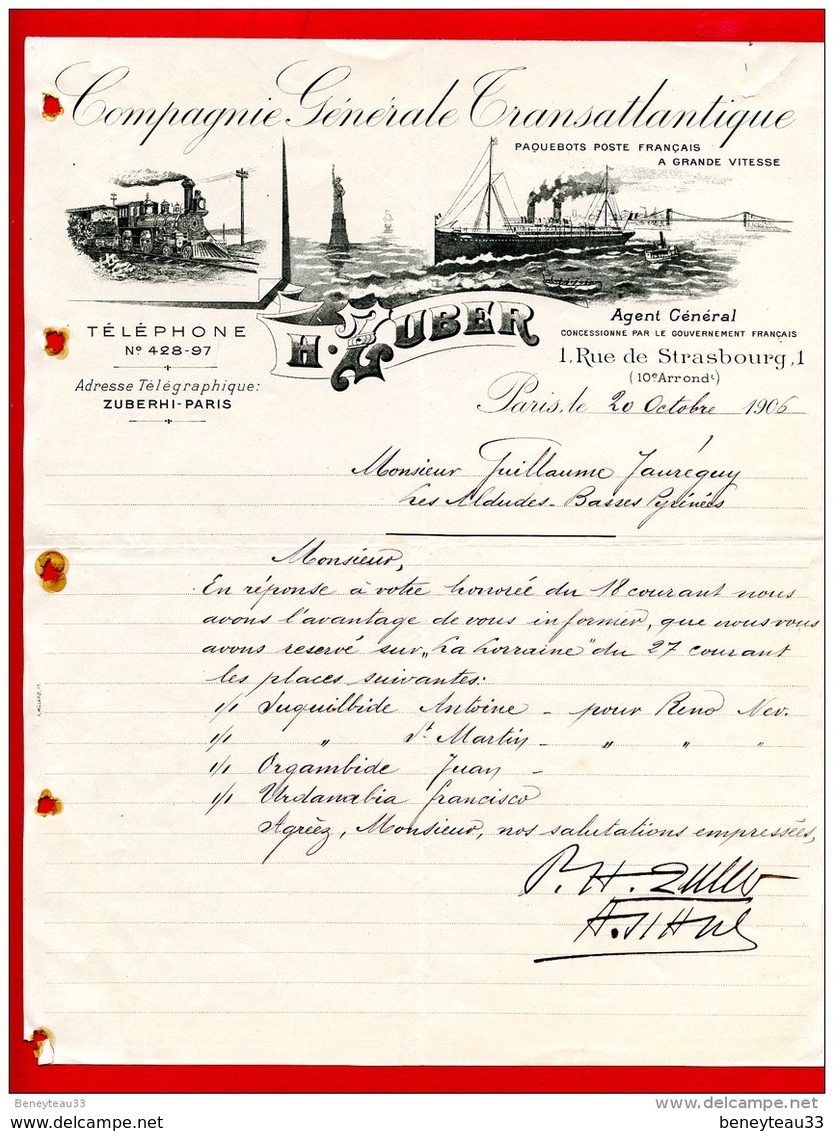 Compagnie Générale Transatlantique
PAQUEBOTS POSTE FRANÇAIS
A GRANDE VITESSE
H. ZUBER
TÉLÉPHONE
Nº 428-97
Adresse Télégraphique:
ZUBERHI-PARIS
Agent Général
CONCESSIONNE PAR LE GOUVERNEMENT FRANÇAIS
1, Rue de Strasbourg, 1
(10e Arrondt)
Paris, le 20 Octobre 1906
Monsieur Guillaume Jaureguy
Les Aldudes - Basses Pyrénées
Monsieur,
En réponse à votre honorée du 18 courant nous
avons l'avantage de vous informer, que nous vous
avons reservé sur „La Lorraine" du 27 courant
les places suivantes:
1/1 Inquilbide Antoine - pour Reno Nev.
1/1 „ St Martin - „ „ „
1/1 Orgambide Juan -
1/1 Urdanabia francisco
Agréez, Monsieur, nos salutations empressées,
P. H. Zuber
Beneyteau33
delcampe.net
beneyteau33